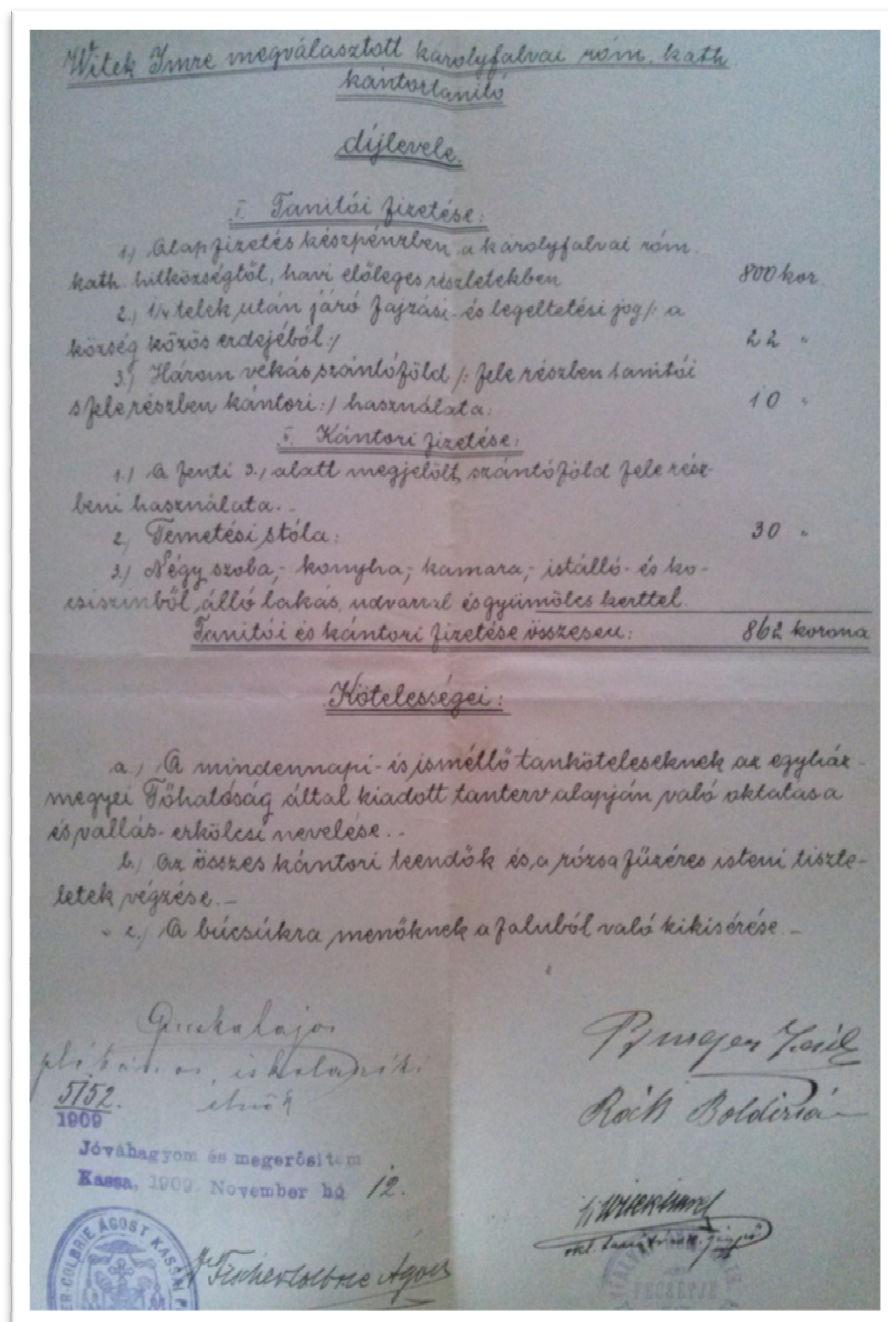 Witek Imre megválasztott károlyfalvai róm. kath.
kántortanító
díjlevele.
I. Tanítói fizetése:
1) Alapfizetés készpénzben, a károlyfalvai róm.
kath. hitközségtől, havi előleges részletekben 800 kor.
2.) 1/4 telek után járó fajzási- és legeltetési jog /: a
község közös erdejéből :/ 22 "
3.) Három vékás szántóföld /: fele részben tanitói
s fele részben kántori :/ használata. 10 "
I. Kántori fizetése:
1.) A fenti 3.) alatt megjelölt szántóföld fele rész-
beni használata. -
2.) Temetési stóla: 30 "
3.) Négy szoba,- konyha,- kamara,- istálló- és ko-
csiszinből álló lakás, udvarral és gyümölcs kerttel.
Tanitói és kántori fizetése összesen: 862 korona
Kötelességei:
a.) A mindennapi- és ismétlő tanköteleseknek az egyház-
megyei Főhatóság által kiadott tanterv alapján való oktatása
és vallás-erkölcsi nevelése. -
b.) Az összes kántori teendők és a rózsafűzéres isteni tiszte-
letek végzése. -
c.) A búcsúkra menőknek a faluból való kikisérése. -
plébános, iskolaszéki
elnök
5152.
1909
Róth Boldizsár
Jóváhagyom és megerősitem
Kassa, 1909. November hó 12.
Witek Imre
okl. tanító
Fischer Colbrie Ágost
COLBRIE ÁGOST KASSAI
PECSÉTJE